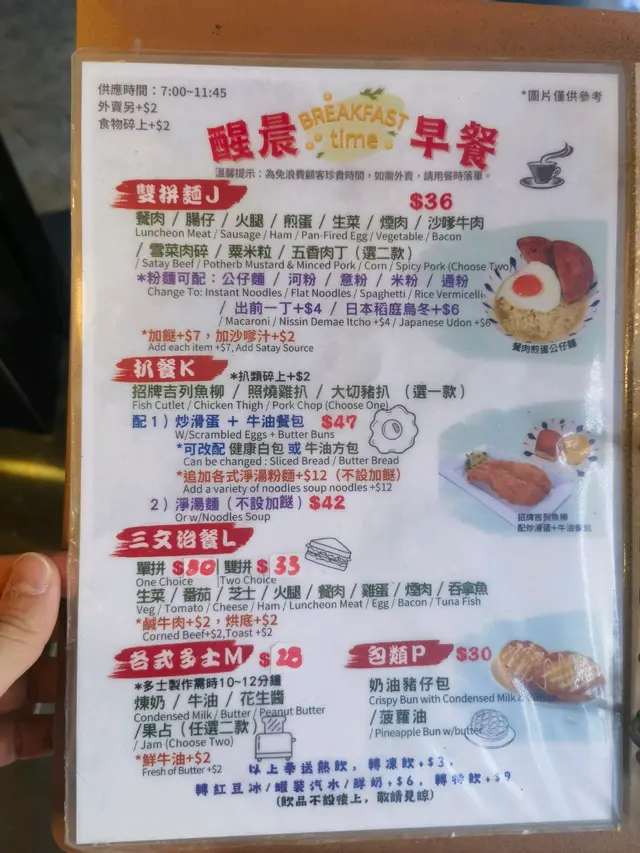 供應時間：7:00~11:45
外賣另+$2
食物碎上+$2
*圖片僅供參考
醒晨 BREAKFAST time 早餐
溫馨提示：為免浪費顧客珍貴時間，如需外賣，請用餐時落單。
雙拼麵J $36
餐肉 / 腸仔 / 火腿 / 煎蛋 / 生菜 / 煙肉 / 沙嗲牛肉
Luncheon Meat / Sausage / Ham / Pan-Fired Egg / Vegetable / Bacon
/ 雪菜肉碎 / 粟米粒 / 五香肉丁（選二款）
/ Satay Beef / Potherb Mustard & Minced Pork / Corn / Spicy Pork (Choose Two)
*粉麵可配：公仔麵 / 河粉 / 意粉 / 米粉 / 通粉
Change To: Instant Noodles / Flat Noodles / Spaghetti / Rice Vermicelli
/ 出前一丁+$4 / 日本稻庭烏冬+$6
/ Macaroni / Nissin Demae Itcho +$4 / Japanese Udon +$6
*加餸+$7，加沙嗲汁+$2
Add each item +$7, Add Satay Source
餐肉煎蛋公仔麵
扒餐K *扒類碎上+$2
招牌吉列魚柳 / 照燒雞扒 / 大切豬扒 （選一款）
Fish Cutlet / Chicken Thigh / Pork Chop (Choose One)
配 1）炒滑蛋 + 牛油餐包 $47
W/Scrambled Eggs + Butter Buns
*可改配 健康白包 或 牛油方包
Can be changed : Sliced Bread / Butter Bread
*追加各式淨湯粉麵+$12（不設加餸）
Add a variety of noodles soup noodles +$12
2）淨湯麵（不設加餸）$42
Or w/Noodles Soup
招牌吉列魚柳
配炒滑蛋+牛油餐包
三文治餐L
單拼 $30 | 雙拼 $35
One Choice | Two Choice
生菜 / 番茄 / 芝士 / 火腿 / 餐肉 / 雞蛋 / 煙肉 / 吞拿魚
Veg / Tomato / Cheese / Ham / Luncheon Meat / Egg / Bacon / Tuna Fish
*鹹牛肉+$2，烘底+$2
Corned Beef+$2,Toast +$2
各式多士M $28
*多士製作需時10~12分鐘
煉奶 / 牛油 / 花生醬
Condensed Milk / Butter / Peanut Butter
/果占（任選二款）
/ Jam (Choose Two)
*鮮牛油+$2
Fresh of Butter +$2
包類P $30
奶油豬仔包
Crispy Bun with Condensed Milk &
/ 菠蘿油
/ Pineapple Bun w/butter
以上奉送熱飲，轉凍飲+$3，
轉紅豆冰/罐裝汽水/鮮奶+$6，轉特飲+$9
(飲品不設後上，敬請見諒)